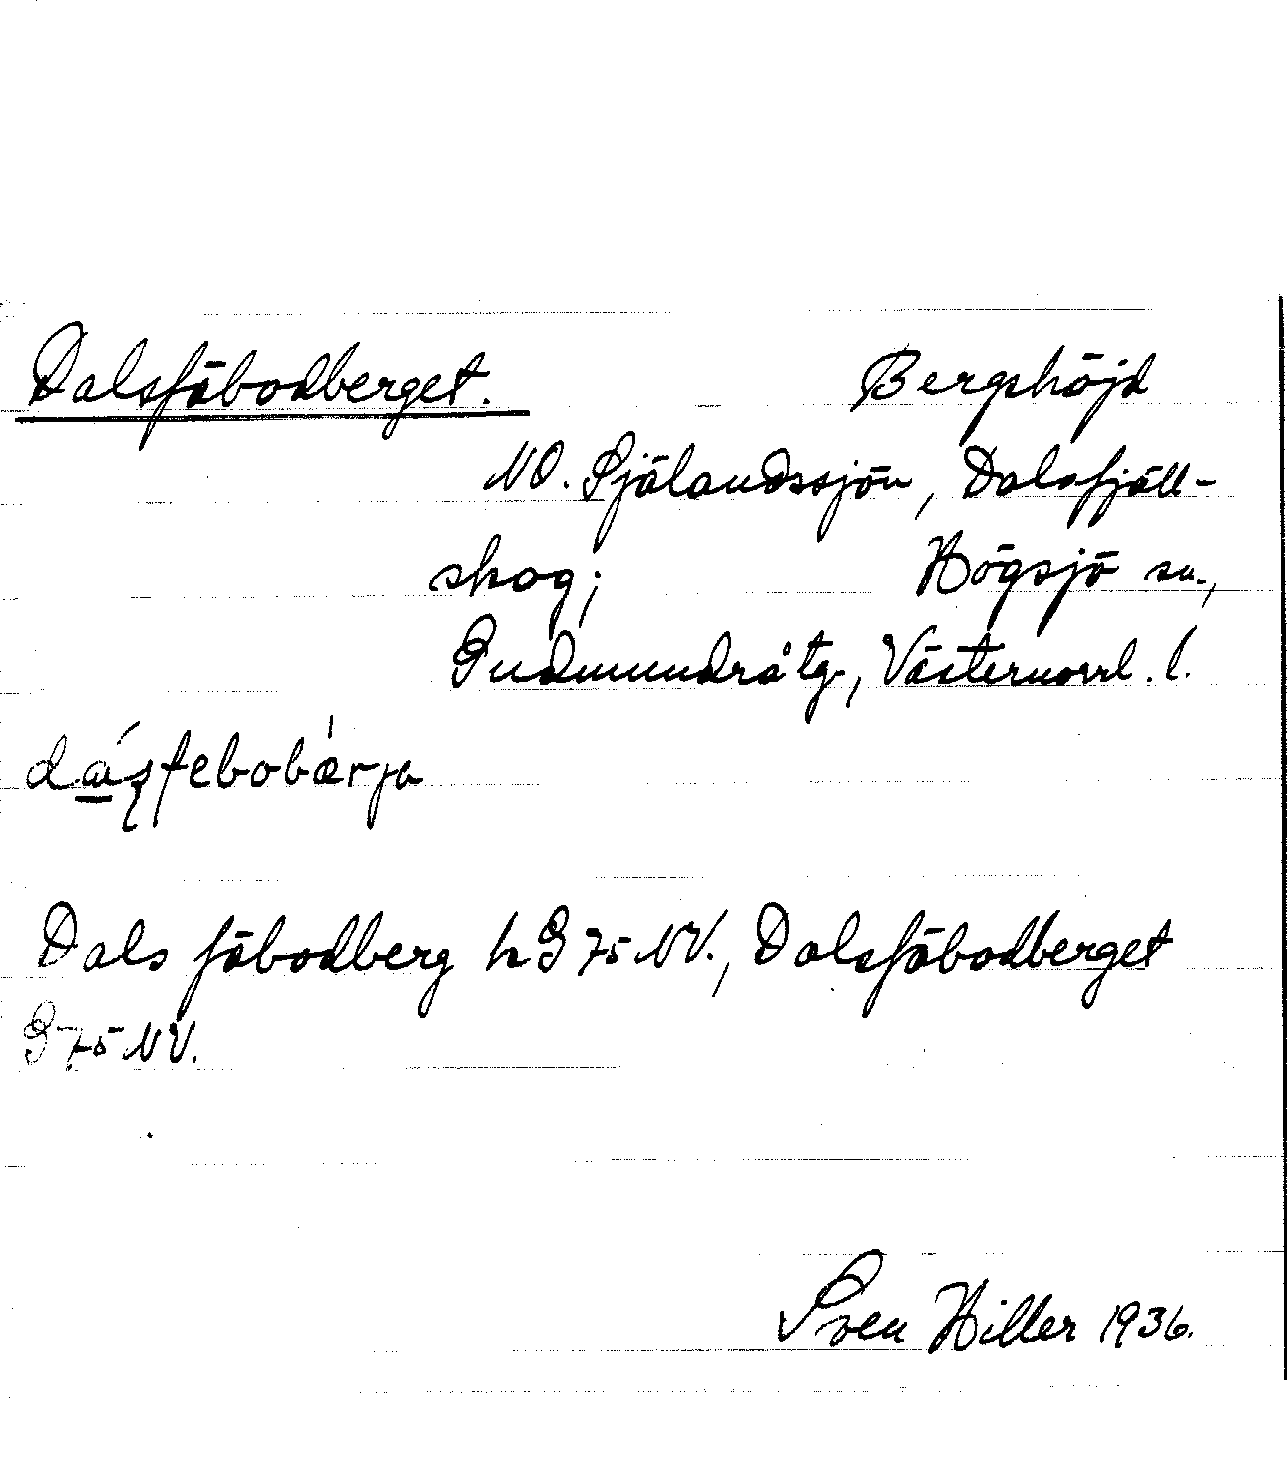 Dalsfäbodberget. Bergshöjd
NO. Själandssjön, Dalsfjäll-
skog; Högsjö sn.,
Gudmundrå tg., Västernorrl. l.
Dals fäbodberg h G 75 NV., Dalsfäbodberget
G 75 NV.
Sven Hiller 1936.